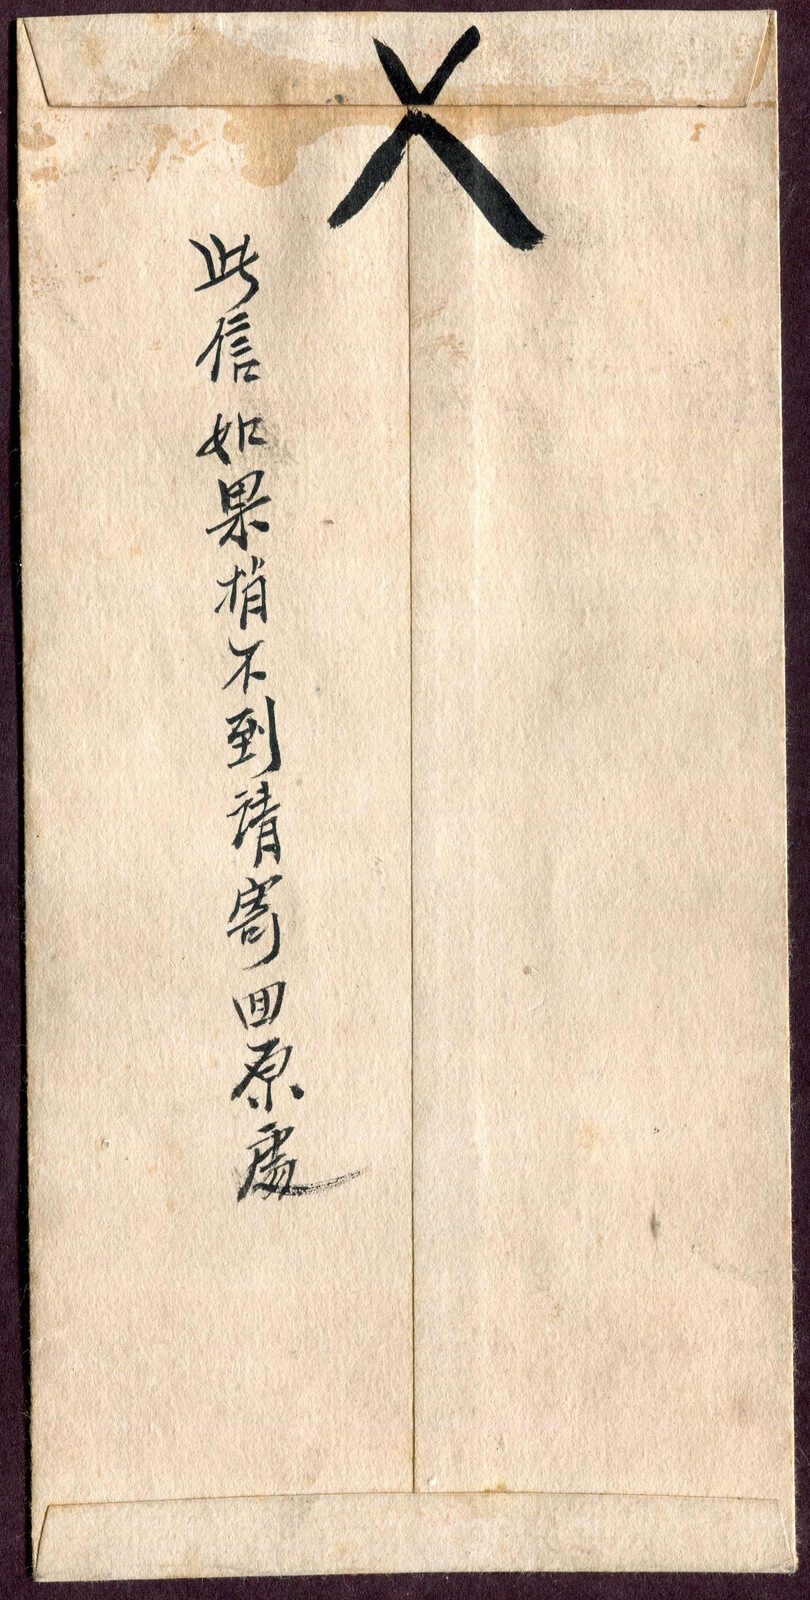 此信如果捎不到請寄回原處